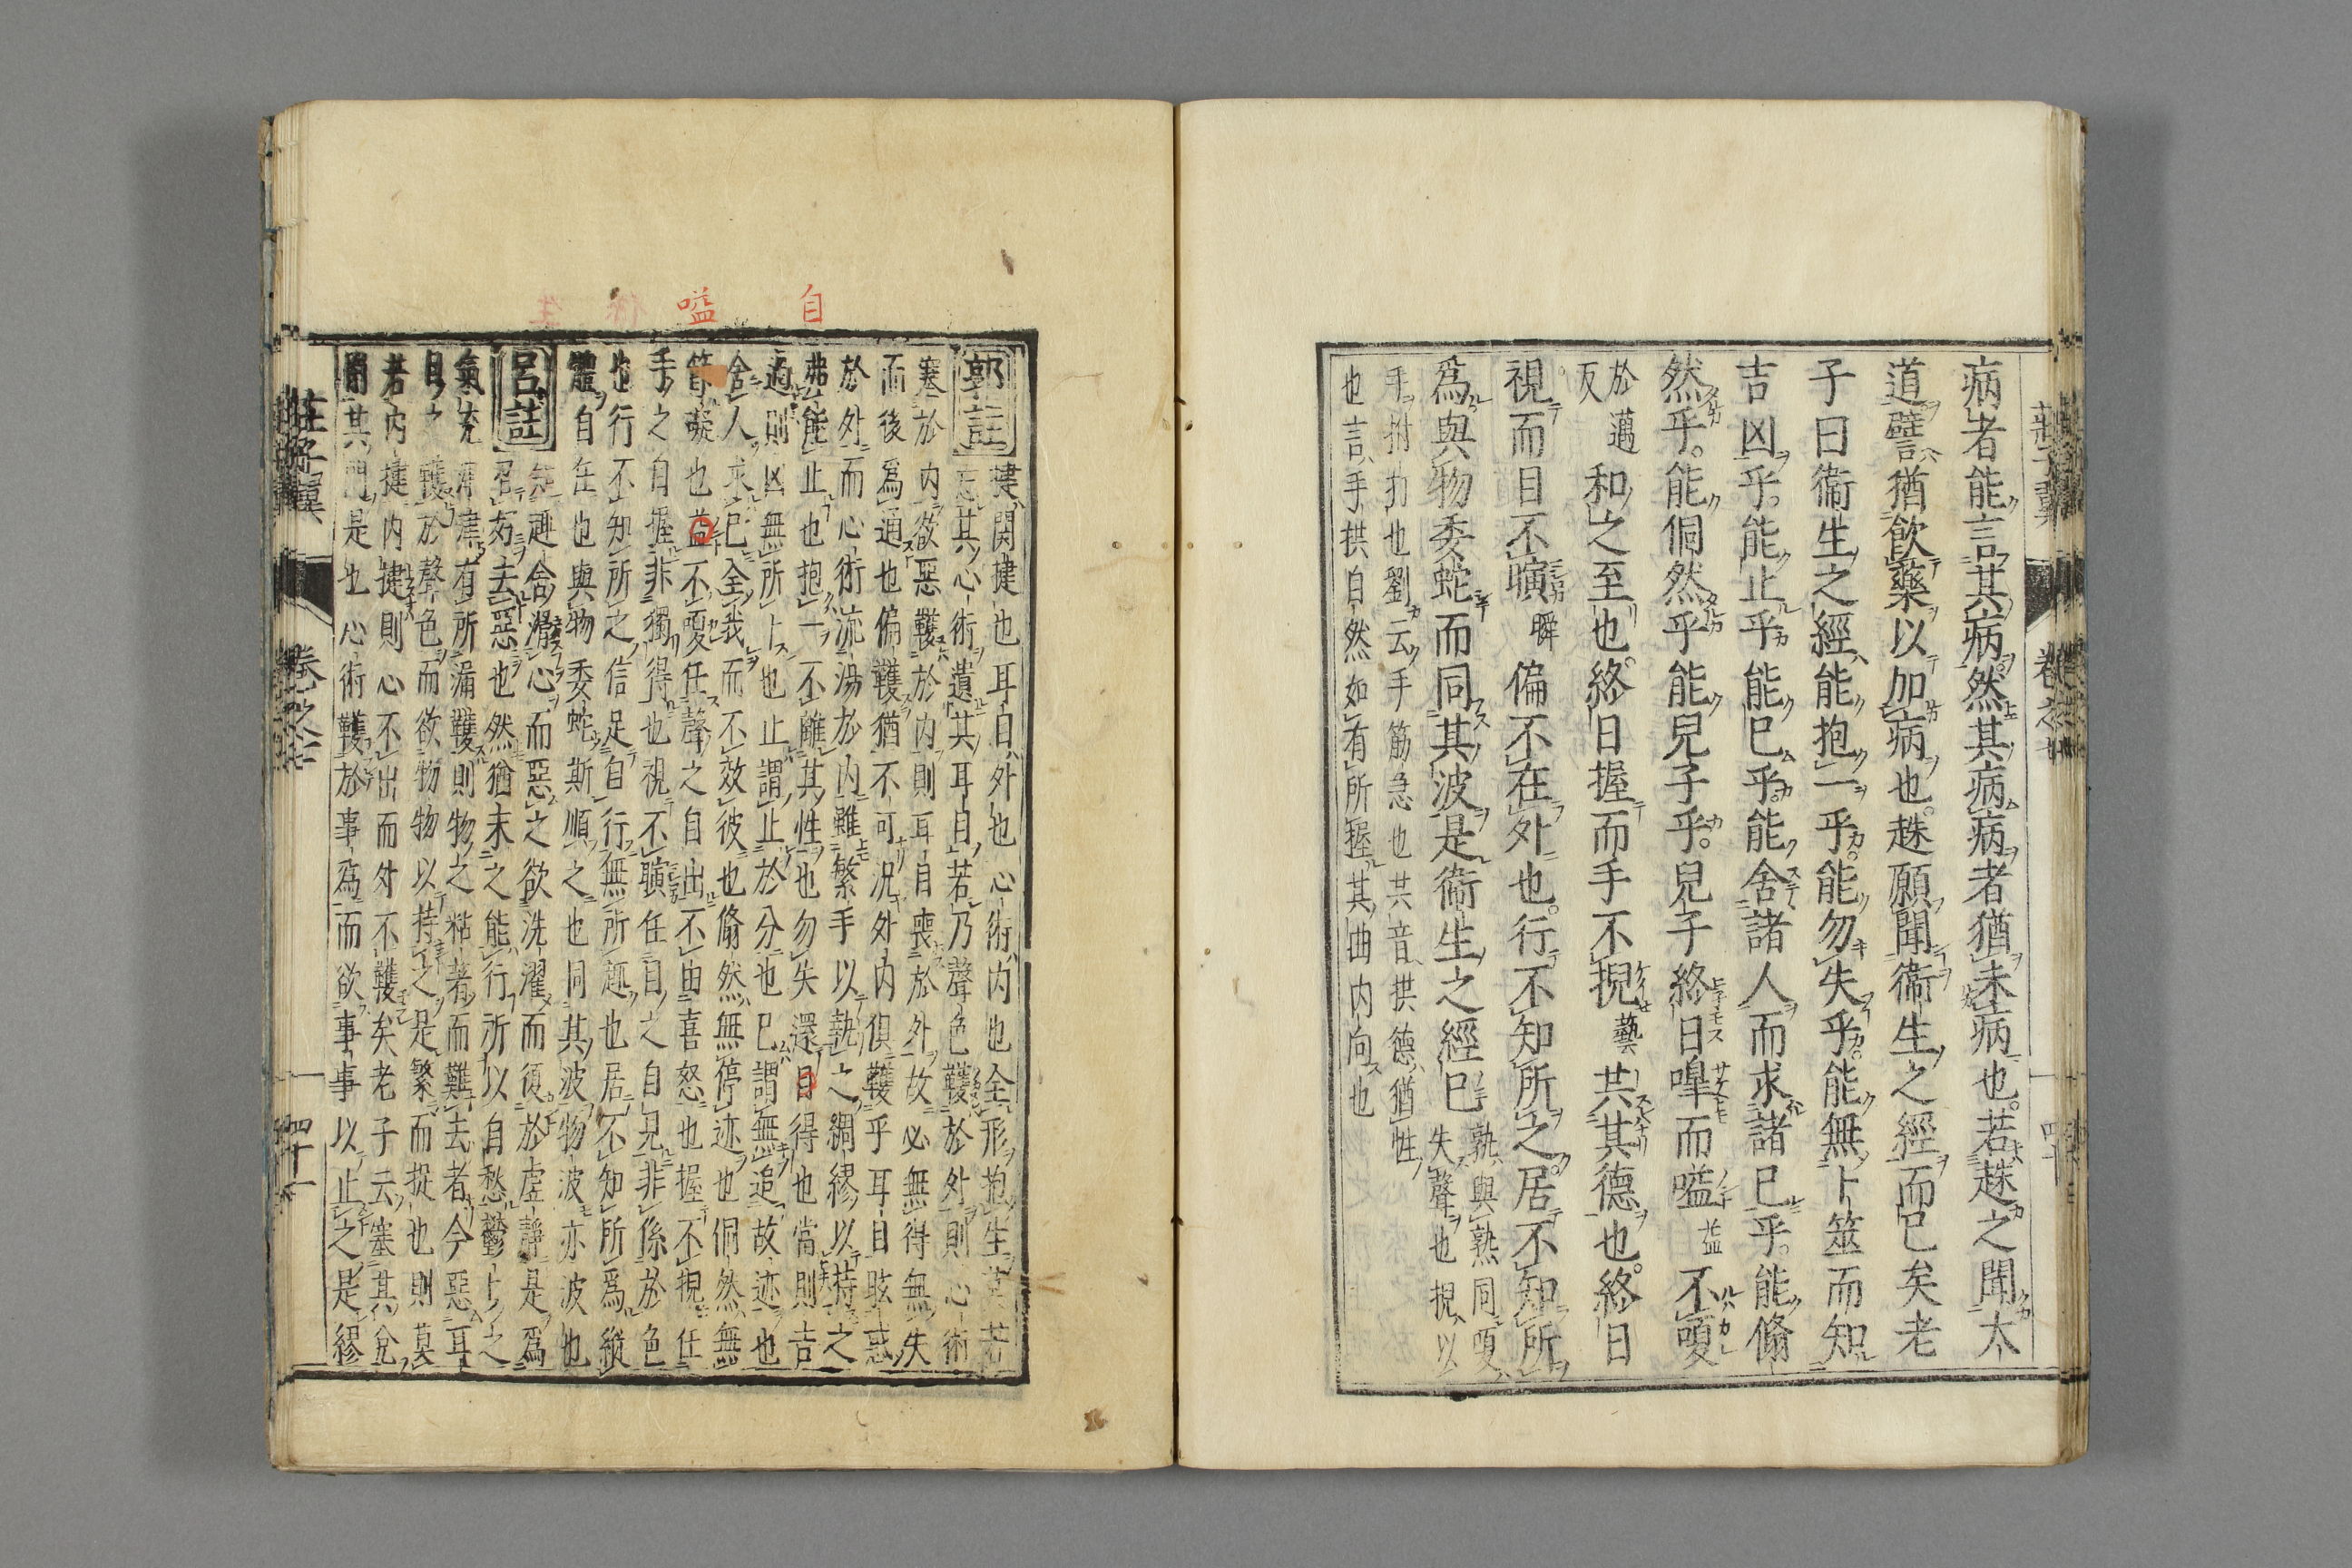 病者能言其病然其病病者猶未病也若趎之聞太
道譬猶飲藥以加病也趎願聞衞生之經而已矣老
子曰衞生之經能抱一乎能勿失乎能無卜筮而知
吉凶乎能止乎能已乎能舍諸人而求諸已乎能翛
然乎能侗然乎能兒子乎兒子終日嘷而嗌益不嗄
於邁反和之至也終日握而手不掜藝共其德也終日
視而目不瞚瞬偏不在外也行不知所之居不知所
爲與物委蛇而同其波是衞生之經已孰與熟同嗄失聲也掜以
手拊扐也劉云手筋急也共音拱德猶性
也言手拱自然如有所握其曲内向也
莊子翼 卷之七
自
嗌
郭註 揵關揵也耳目外也心術内也全形抱生莫若
忘其心術遺其耳目若乃聲色韄於外則心術
塞於内欲惡韄於内則耳目喪於外故必無得無失
而後爲通也偏韄猶不可況外内俱韄乎耳目眩惑
於外而心術流湯於内雖繁手以執之綢繆以持之
弗能止也抱一不離其性也勿失還日得也當則吉
過則凶無所卜也止謂止於分也已謂無追故迹也
舍人求已全我而不效彼也翛然無停迹也侗然無
節礙也益不嗄任聲之自出不由喜怒也握不掜任
手之自握非獨得也視不瞚任目之自見非係於色
也行不知所之信足自行無所趣也居不知所爲縱
體自任也與物委蛇斯順之也同其波物波亦波也
呂註 趣舍滑心而惡之欲洗濯而復於虛靜是爲
召好去惡也然猶未之能行所以自愁鬱之
氣充津津有所漏韄則物之粘著而難去者今惡耳
目之韄於聲色而欲物物以持之是繁而捉也則莫
若内揵内揵則心不出而外不韄矣老子云塞其兌
閉其門是也心術韄於事爲而欲事事以止之是繆
莊子翼 卷之七 四十一